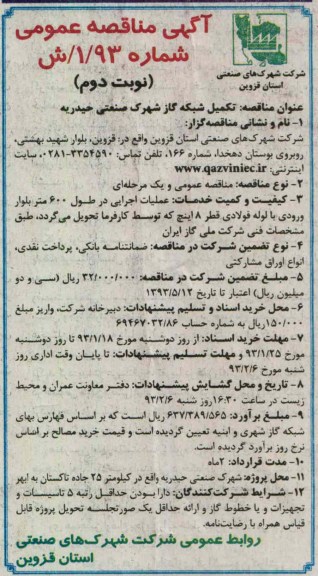 آگهی مناقصه عمومی
شماره ۱/۹۳/ش
(نوبت دوم)
شرکت شهرک‌های صنعتی
استان قزوین
عنوان مناقصه: تکمیل شبکه گاز شهرک صنعتی حیدریه
۱- نام و نشانی مناقصه‌گزار:
شرکت شهرک‌های صنعتی استان قزوین واقع در: قزوین، بلوار شهید بهشتی،
روبروی بوستان دهخدا، شماره ۱۶۶، تلفن تماس: ۳۳۵۴۵۹۰-۰۲۸۱، سایت
اینترنتی: www.qazviniec.ir
۲- نوع مناقصه: مناقصه عمومی و یک مرحله‌ای
۳- کیفیت و کمیت خدمات: عملیات اجرایی در طول ۶۰۰ متر بلوار
ورودی با لوله فولادی قطر ۸ اینچ که توسط کارفرما تحویل می‌گردد، طبق
مشخصات فنی شرکت ملی گاز ایران
۴- نوع تضمین شرکت در مناقصه: ضمانتنامه بانکی، پرداخت نقدی،
انواع اوراق مشارکتی
۵- مبلغ تضمین شرکت در مناقصه: ۳۲/۰۰۰/۰۰۰ ریال (سی و دو
میلیون ریال) اعتبار تا تاریخ ۱۳۹۳/۵/۱۲
۶- محل خرید اسناد و تسلیم پیشنهادات: دبیرخانه شرکت، واریز مبلغ
۱۵۰/۰۰۰ ریال به شماره حساب ۶۹۴۶۷۰۳۲/۸۶
۷- مهلت خرید اسناد: از روز دوشنبه مورخ ۹۳/۱/۱۸ تا روز دوشنبه
مورخ ۹۳/۱/۲۵ و مهلت تسلیم پیشنهادات: تا پایان وقت اداری روز
شنبه مورخ ۹۳/۲/۶
۸- تاریخ و محل گشایش پیشنهادات: دفتر معاونت عمران و محیط
زیست در ساعت ۱۶:۳۰ روز شنبه ۹۳/۲/۶
۹- مبلغ برآورد: ۶۳۷/۳۸۹/۵۶۵ ریال است که بر اساس فهارس بهای
شبکه گاز شهری و ابنیه تعیین گردیده است و قیمت خرید مصالح بر اساس
نرخ روز برآورد گردیده است.
۱۰- مدت قرارداد: ۲ ماه
۱۱- محل پروژه: شهرک صنعتی حیدریه واقع در کیلومتر ۲۵ جاده تاکستان به ابهر
۱۲- شرایط شرکت‌کنندگان: دارا بودن حداقل رتبه ۵ تاسیسات و
تجهیزات و یا خطوط گاز و ارائه حداقل یک صورتجلسه تحویل پروژه قابل
قیاس همراه با رضایت‌نامه.
روابط عمومی شرکت شهرک‌های صنعتی
استان قزوین